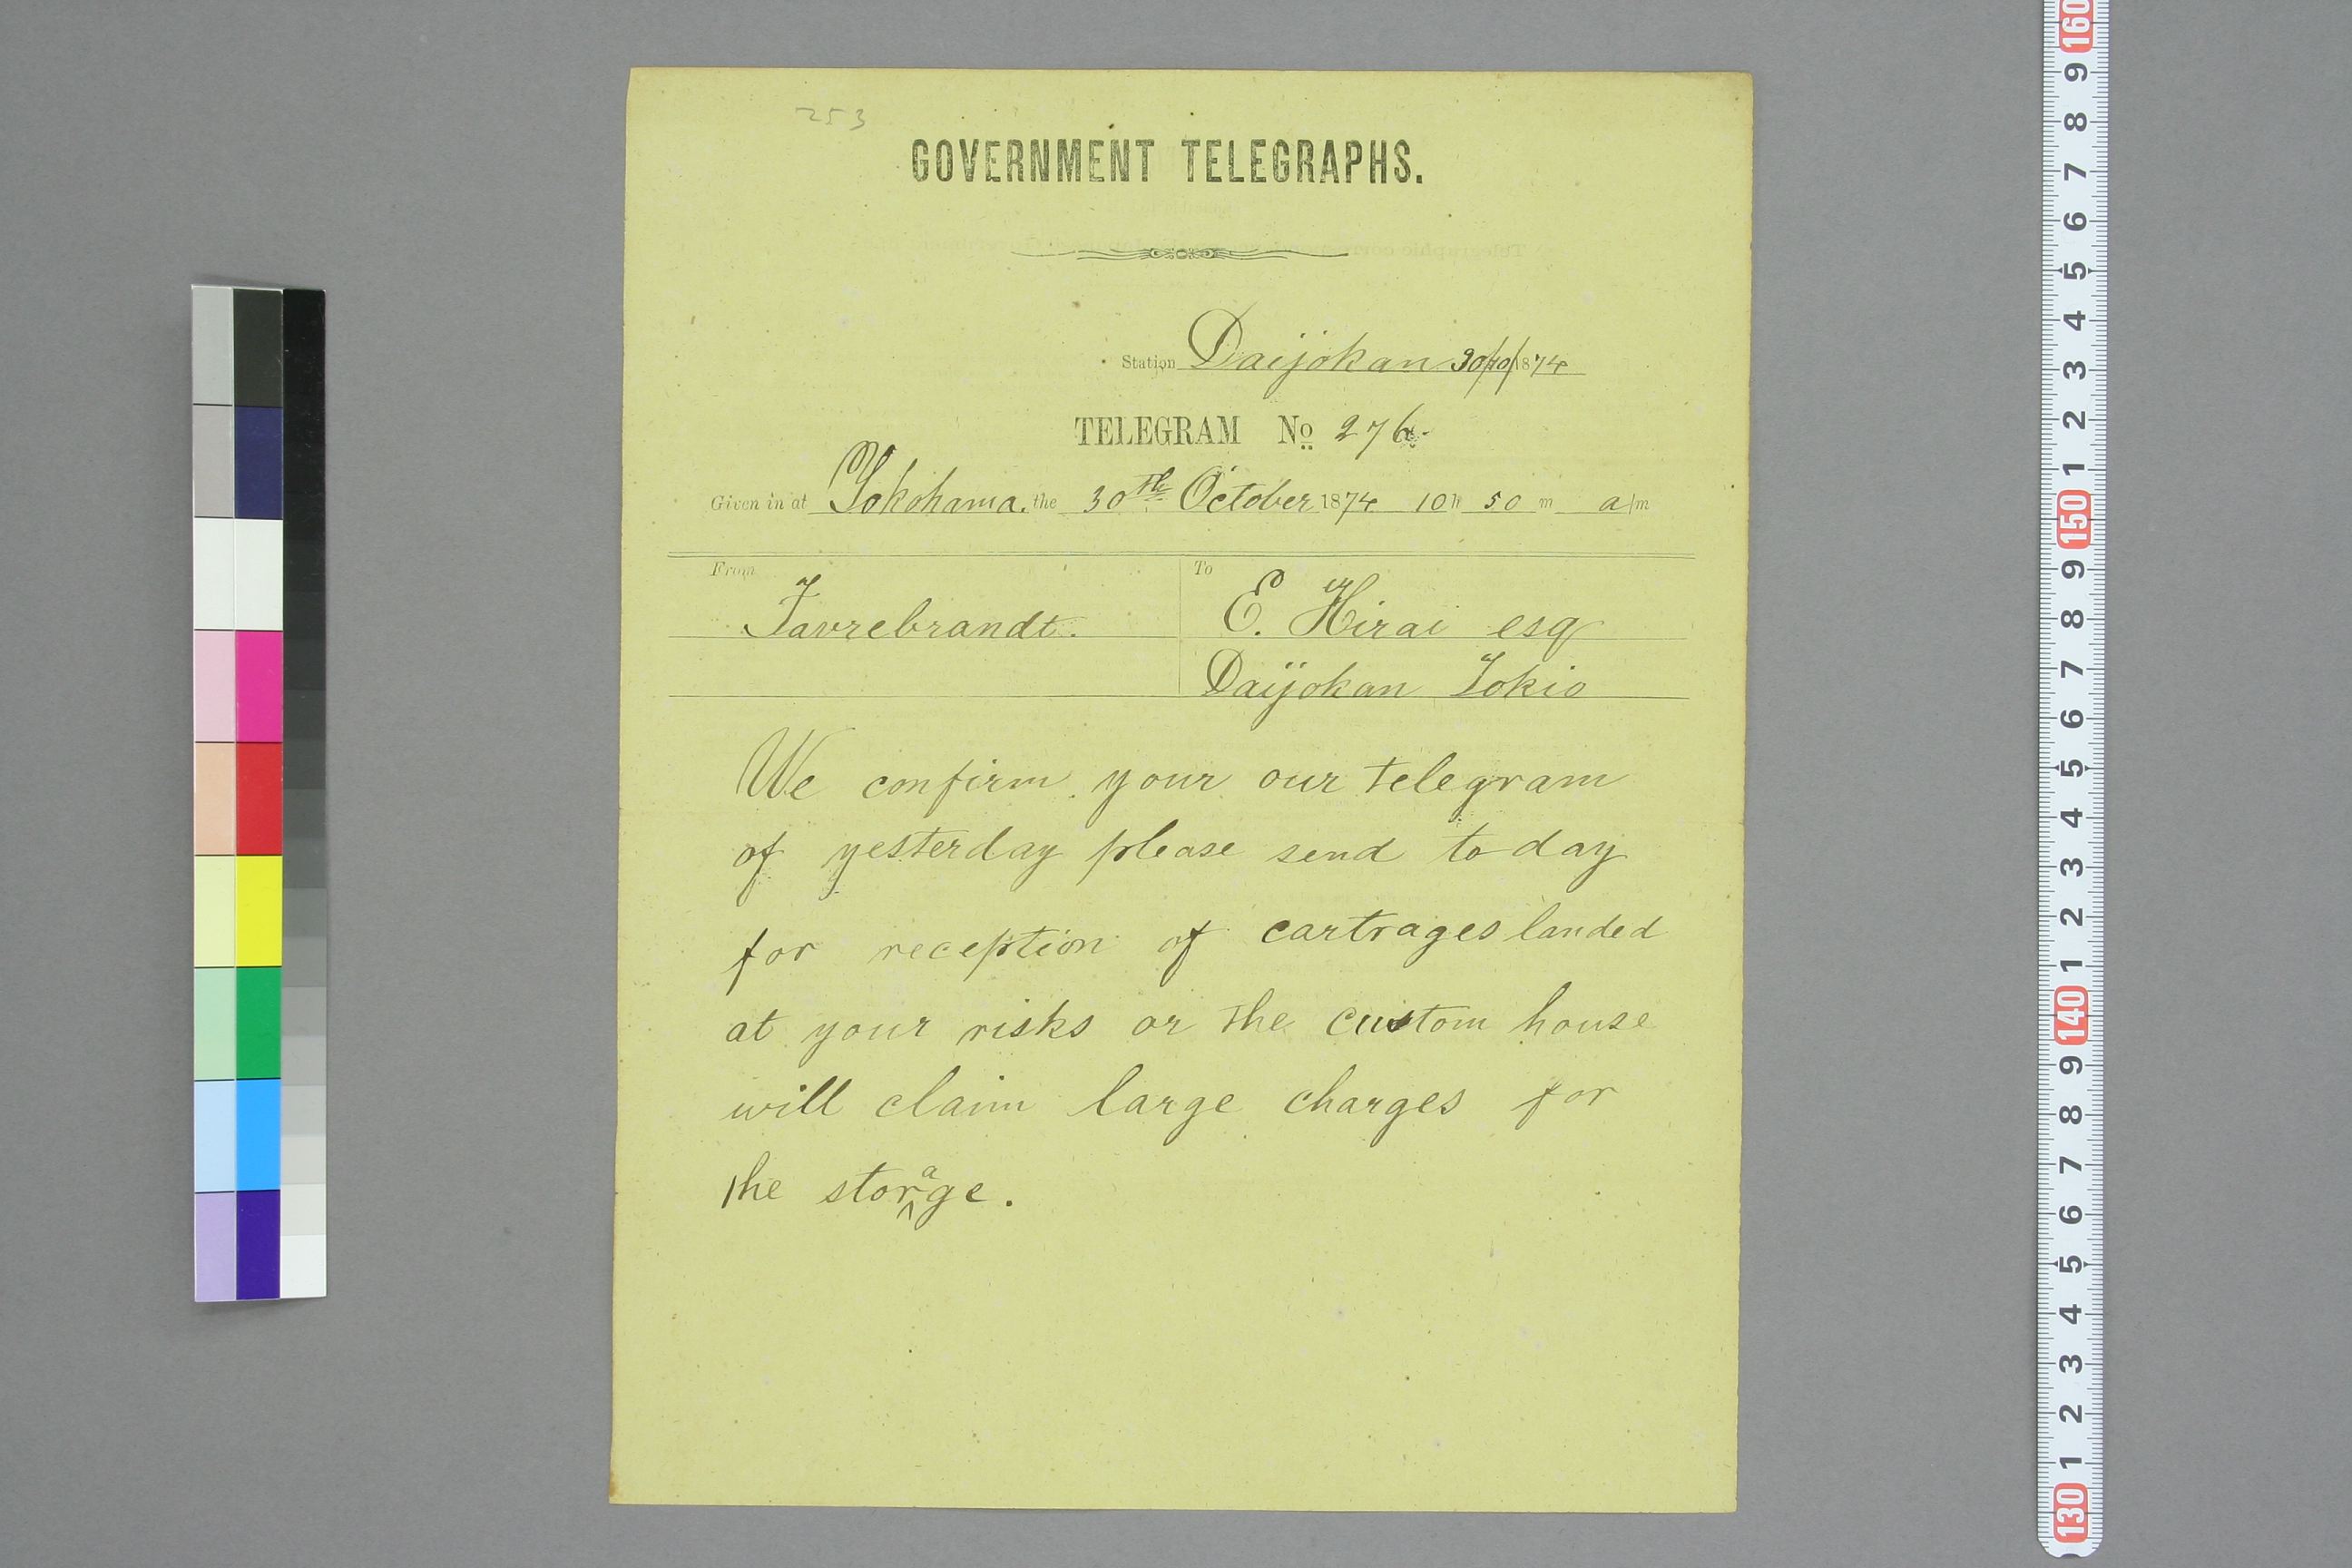 253
GOVERNMENT TELEGRAPHS.
Station Daijokan 30/10/1874
TELEGRAM No 276
Given in at Yokohama. the 30th October 1874 10h 50m a/m
From Favrebrandt.
To E. Hirai esq
Daijokan Tokio
We confirm your our telegram
of yesterday please send to day
for reception of cartrages landed
at your risks or the custom house
will claim large charges for
the storage.
160
9
8
7
6
5
4
3
2
1
150
9
8
7
6
5
4
3
2
1
140
9
8
7
6
5
4
3
2
1
130